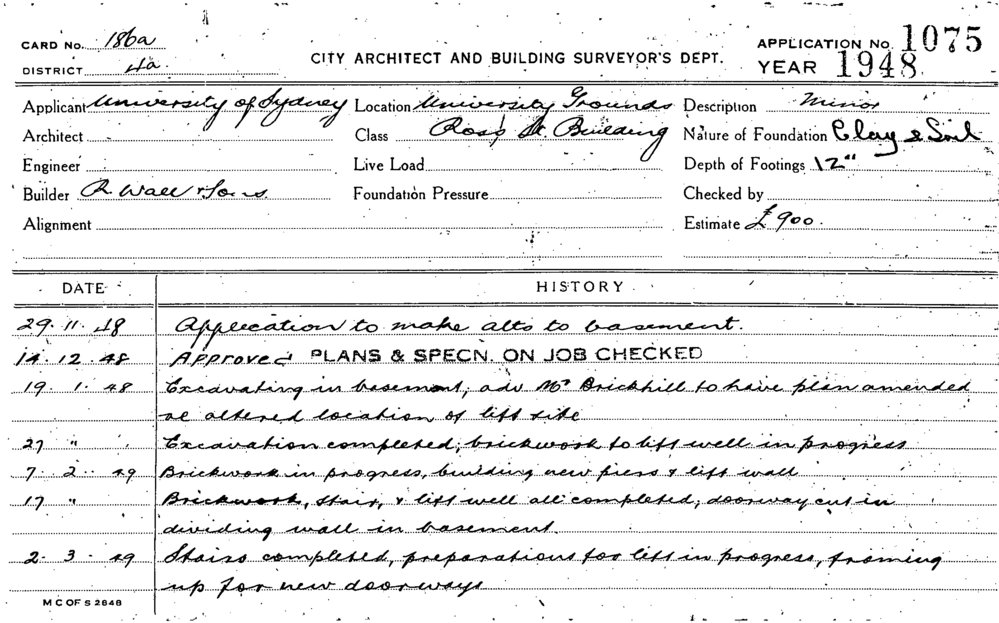 CARD No. 186a
DISTRICT 4a
CITY ARCHITECT AND BUILDING SURVEYOR'S DEPT.
APPLICATION No. 1075
YEAR 1948
Applicant University of Sydney Location University Grounds Description Minor
Architect Class Ross St. Building Nature of Foundation Clay & Soil
Engineer Live Load Depth of Footings 12"
Builder R. Wall & Sons Foundation Pressure Checked by
Alignment Estimate £900.
DATE HISTORY
29. 11. 48 Application to make alts to basement.
14. 12. 48 Approved PLANS & SPECN. ON JOB CHECKED
19. 1. 48 Excavating in basement, adv Mr Brickhill to have plan amended
re altered location of lift site
27 " Excavation completed, brickwork to lift well in progress
7. 2. 49 Brickwork in progress, building new piers & lift wall
17 " Brickwork, stair, & lift well all completed, doorway cut in
dividing wall in basement.
2. 3. 49 Stairs completed, preparations for lift in progress, framing
up for new doorways
M C OF S 2848